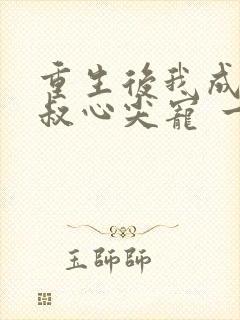 重生後我成
叔心尖寵
玉師師